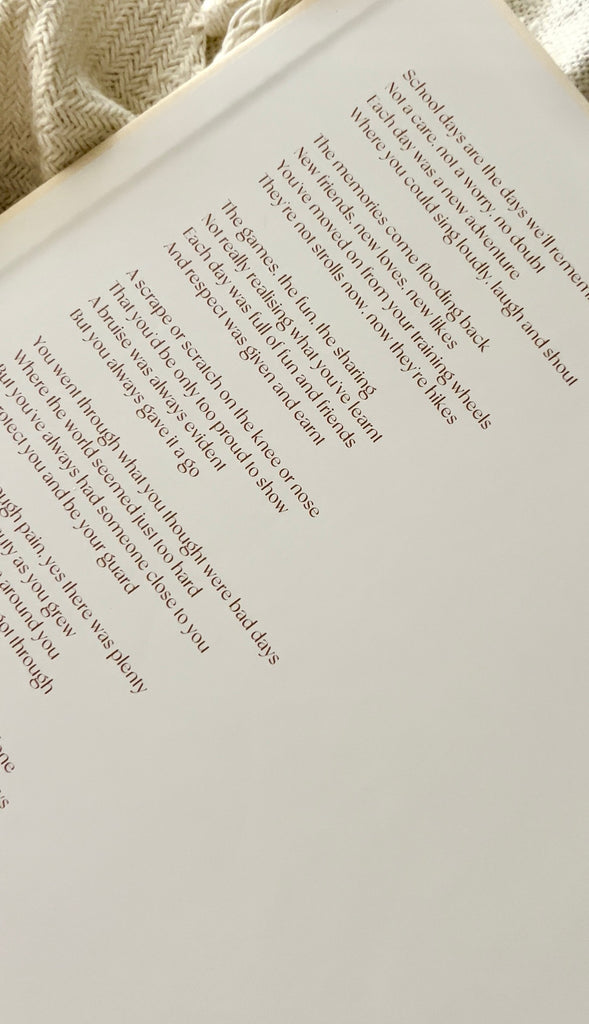 School days are the days we'll
Not a care, not a worry, no doubt
Each day was a new adventure
Where you could sing loudly, laugh and shout
The memories come flooding back
New friends, new loves, new likes
You've moved on from your training wheels
They're not strolls now, now they're hikes
The games, the fun, the sharing
Not really realising what you've learnt
Each day was full of fun and friends
And respect was given and earnt
A scrape or scratch on the knee or nose
That you'd be only too proud to show
A bruise was always evident
But you always gave it a go
You went through what you thought were bad days
Where the world seemed just too hard
But you've always had someone close to you
protect you and be your guard
pain, yes there was plenty
as you grew
around you
through